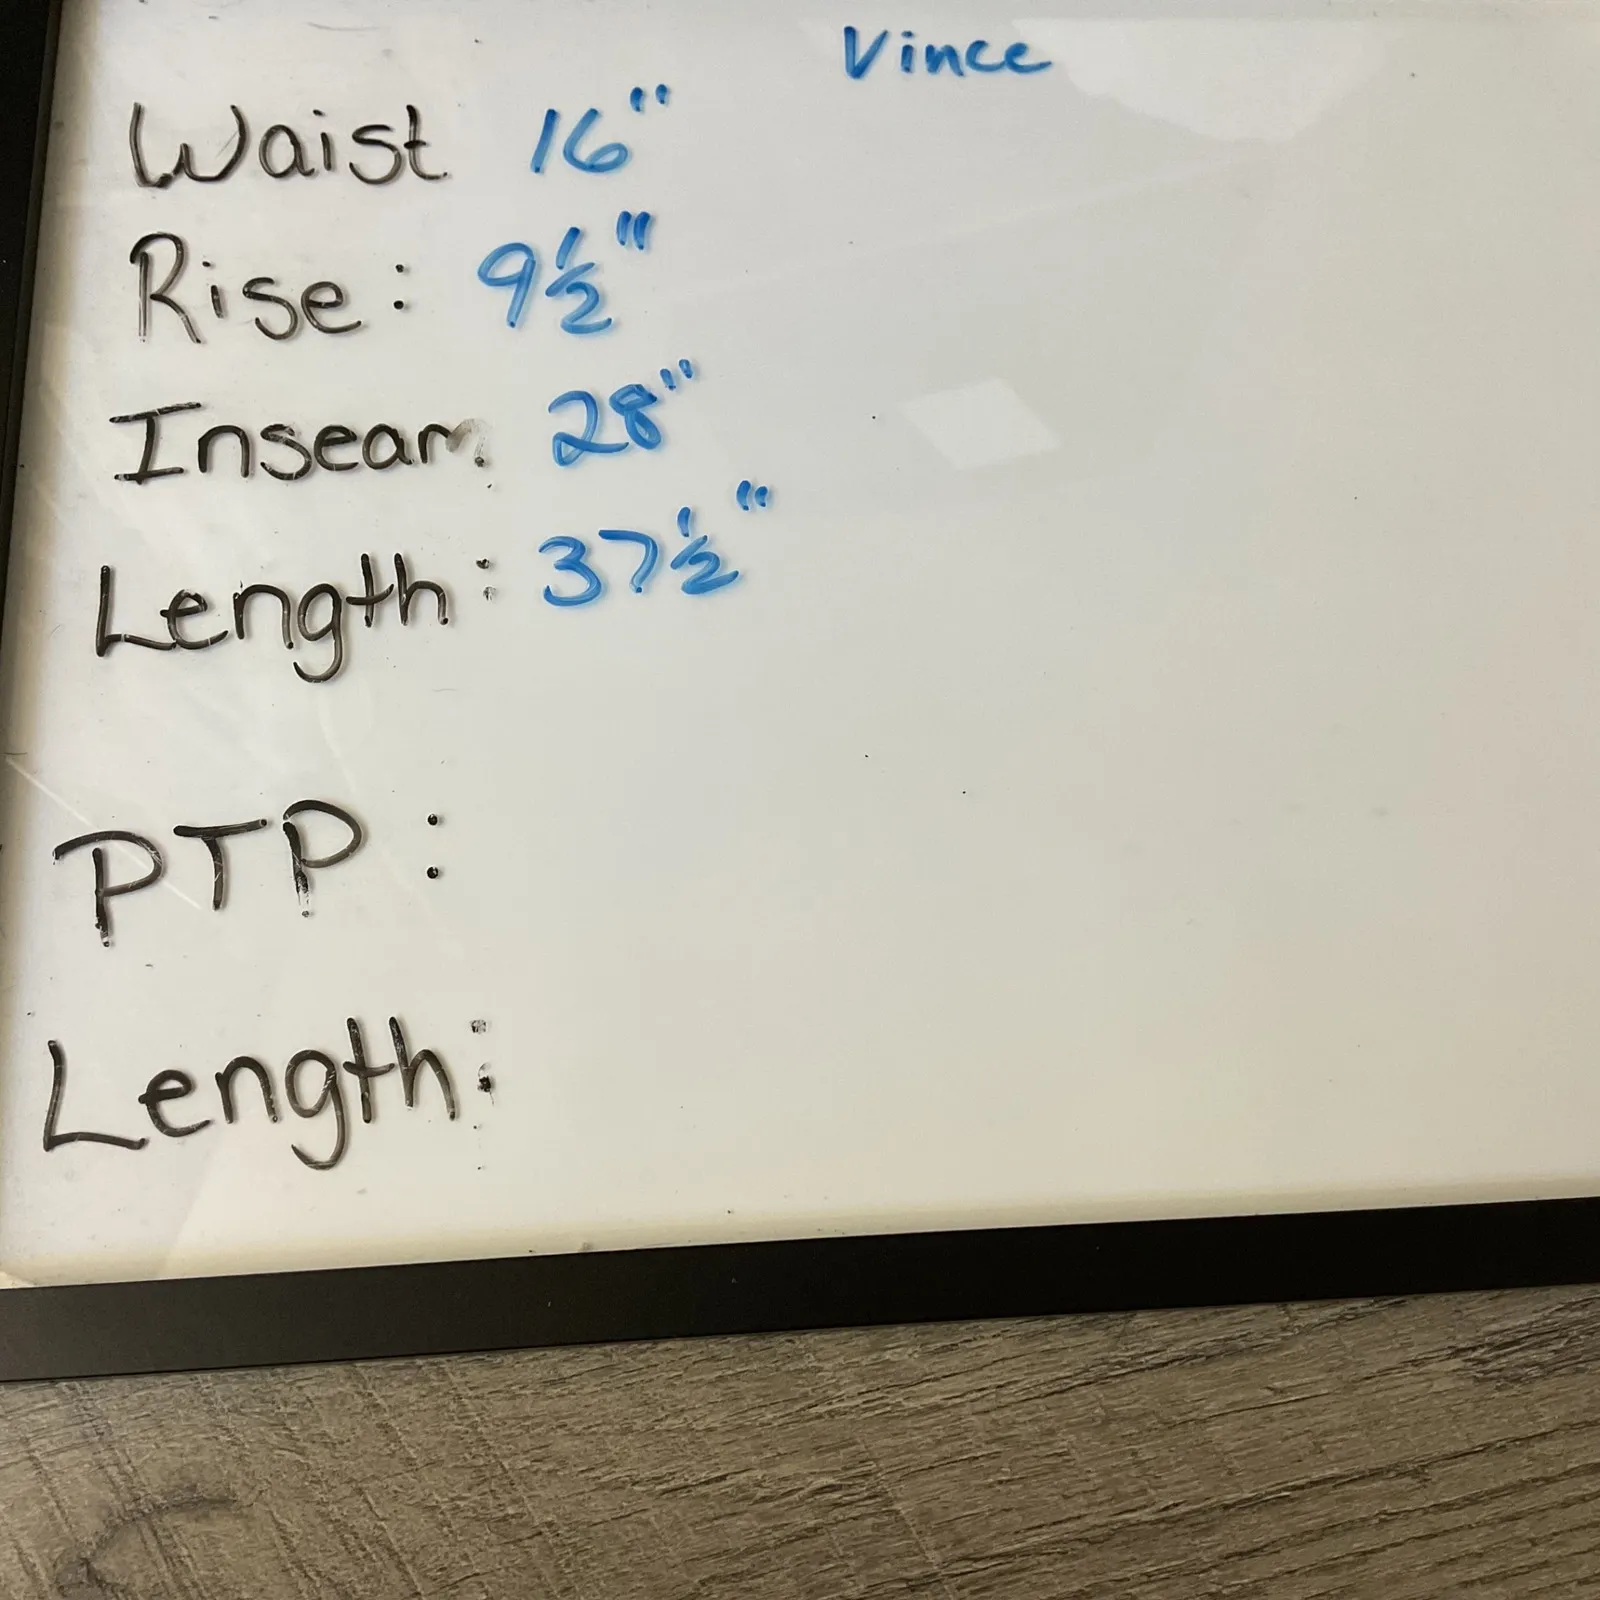 Vince
Waist 16"
Rise: 9½"
Inseam: 28"
Length: 37½"
PTP:
Length: